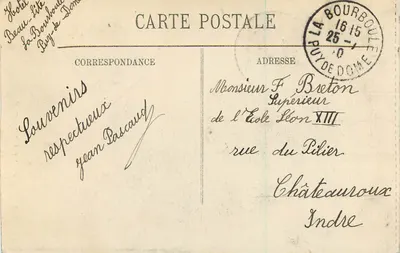 Hotel
Beau-Site
La Bourboule
Puy-de-Dome
CARTE POSTALE
LA BOURBOULE
16 15
25 - 
PUY DE DOME
CORRESPONDANCE
ADRESSE
Souvenirs
respectueux
Jean Pascaud
Monsieur F Breton
Supérieur
de l'Ecole Léon XIII
rue du Pilier
Châteauroux
Indre